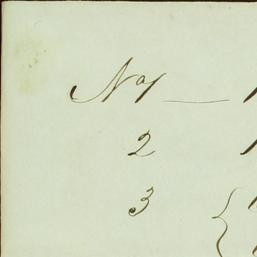 No 1 —
2
3 {